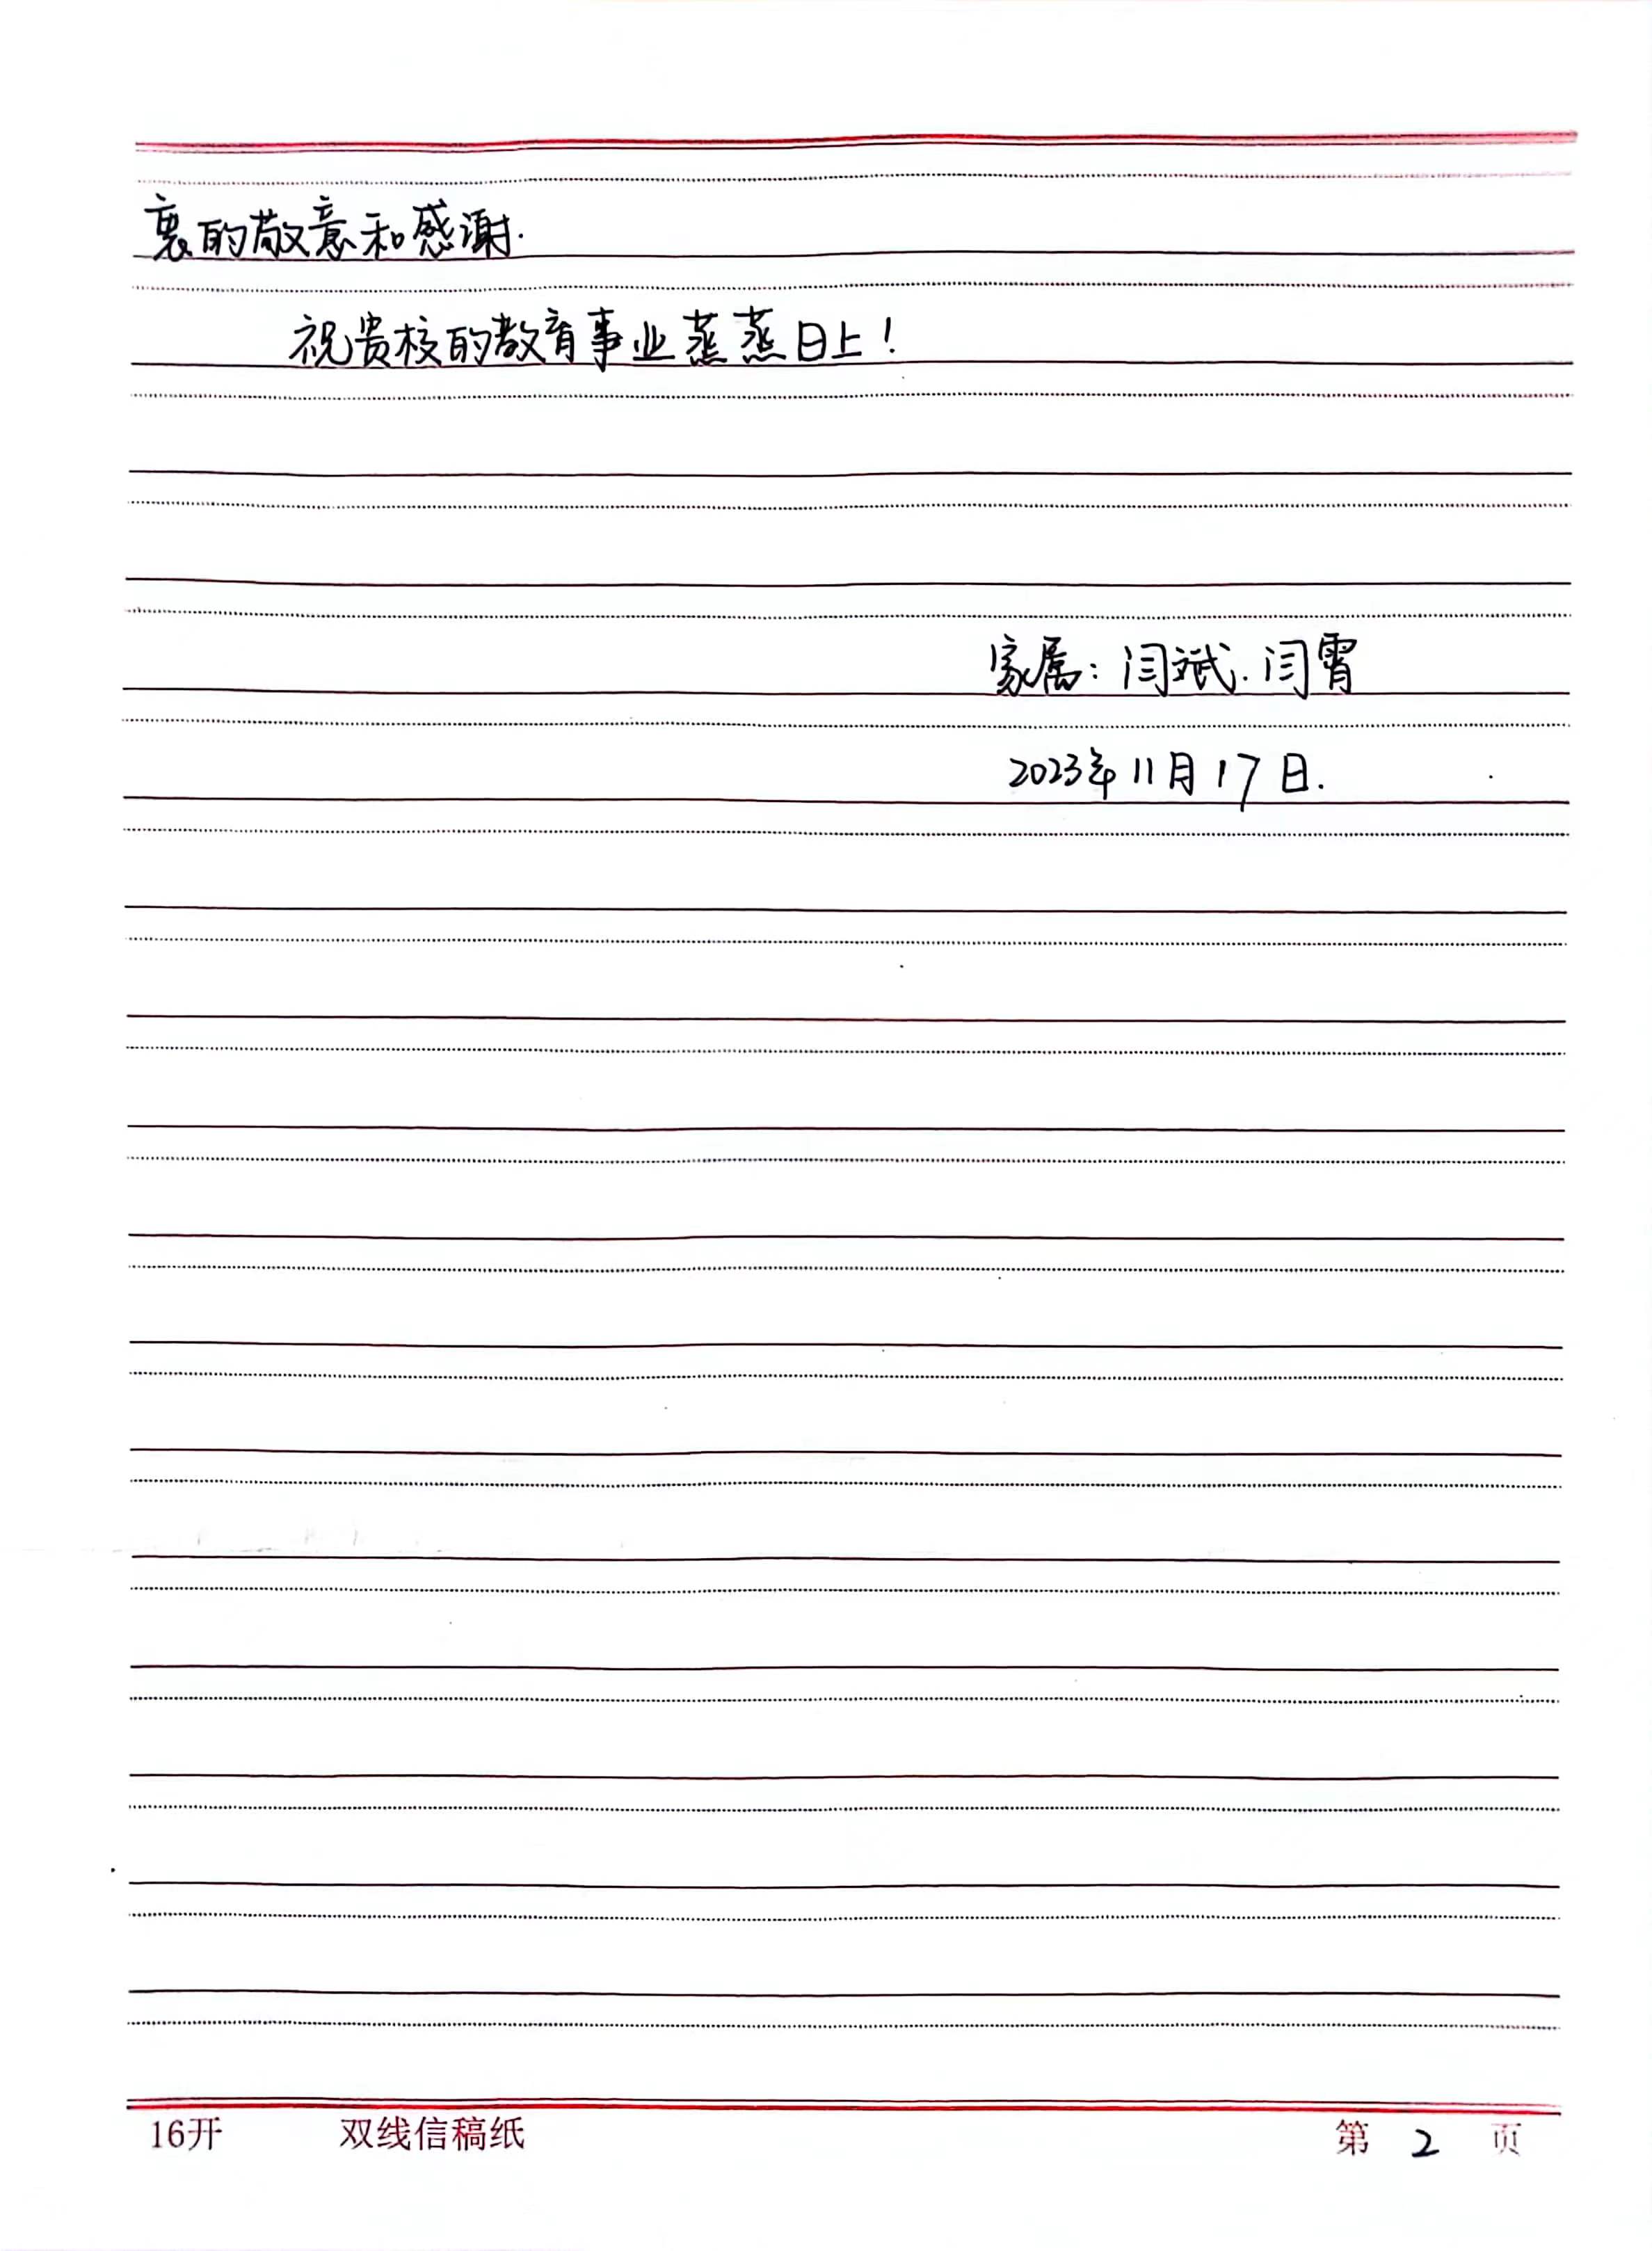 衷的敬意和感谢.
祝贵校的教育事业蒸蒸日上!
家属: 闫斌. 闫霄
2023年11月17日.
16开 双线信稿纸 第 2 页